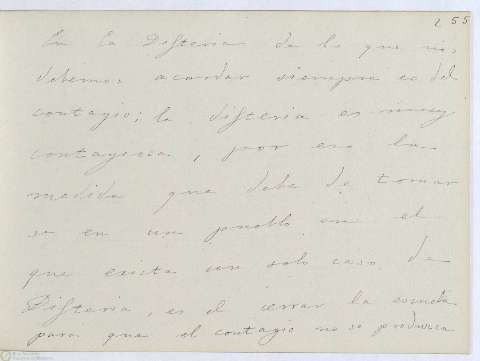 255
En la Difteria de lo que nos
debemos acordar siempre es del
contagio; la difteria es muy
contagiosa, por eso la
medida que debe de tomar
se en un pueblo en el
que exista un solo caso de
Difteria, es el cerrar la escuela
para que el contagio no se produzca